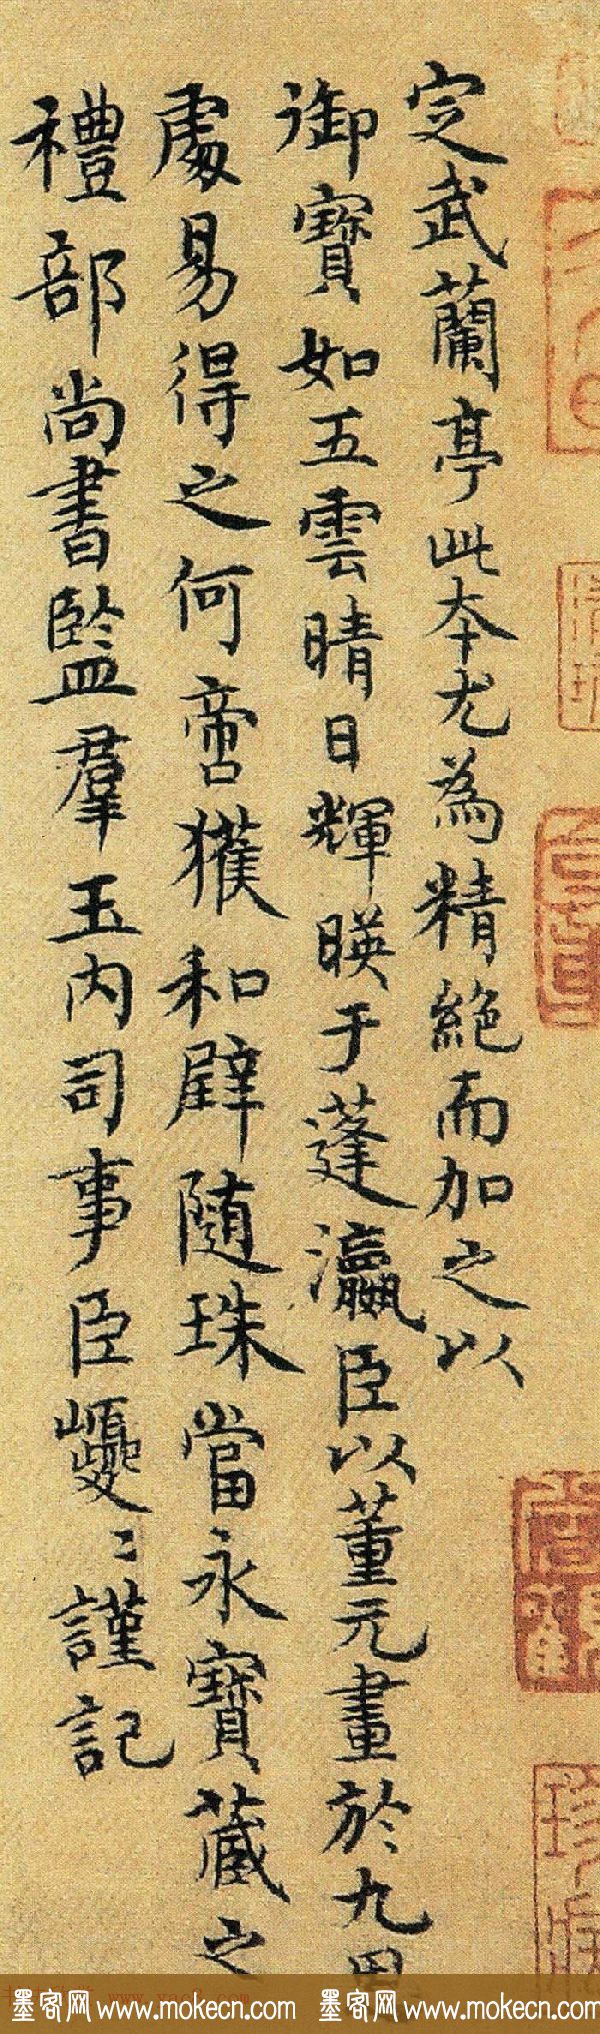 定武蘭亭此本尤為精絶而加之以
御寶如五雲晴日輝暎于蓬瀛臣以董元畫於九思
處易得之何啻獲和璧隨珠當永寶藏之
禮部尚書監羣玉内司事臣巙〻謹記
墨客网 www.mokecn.com 墨客网 www.mokecn.com